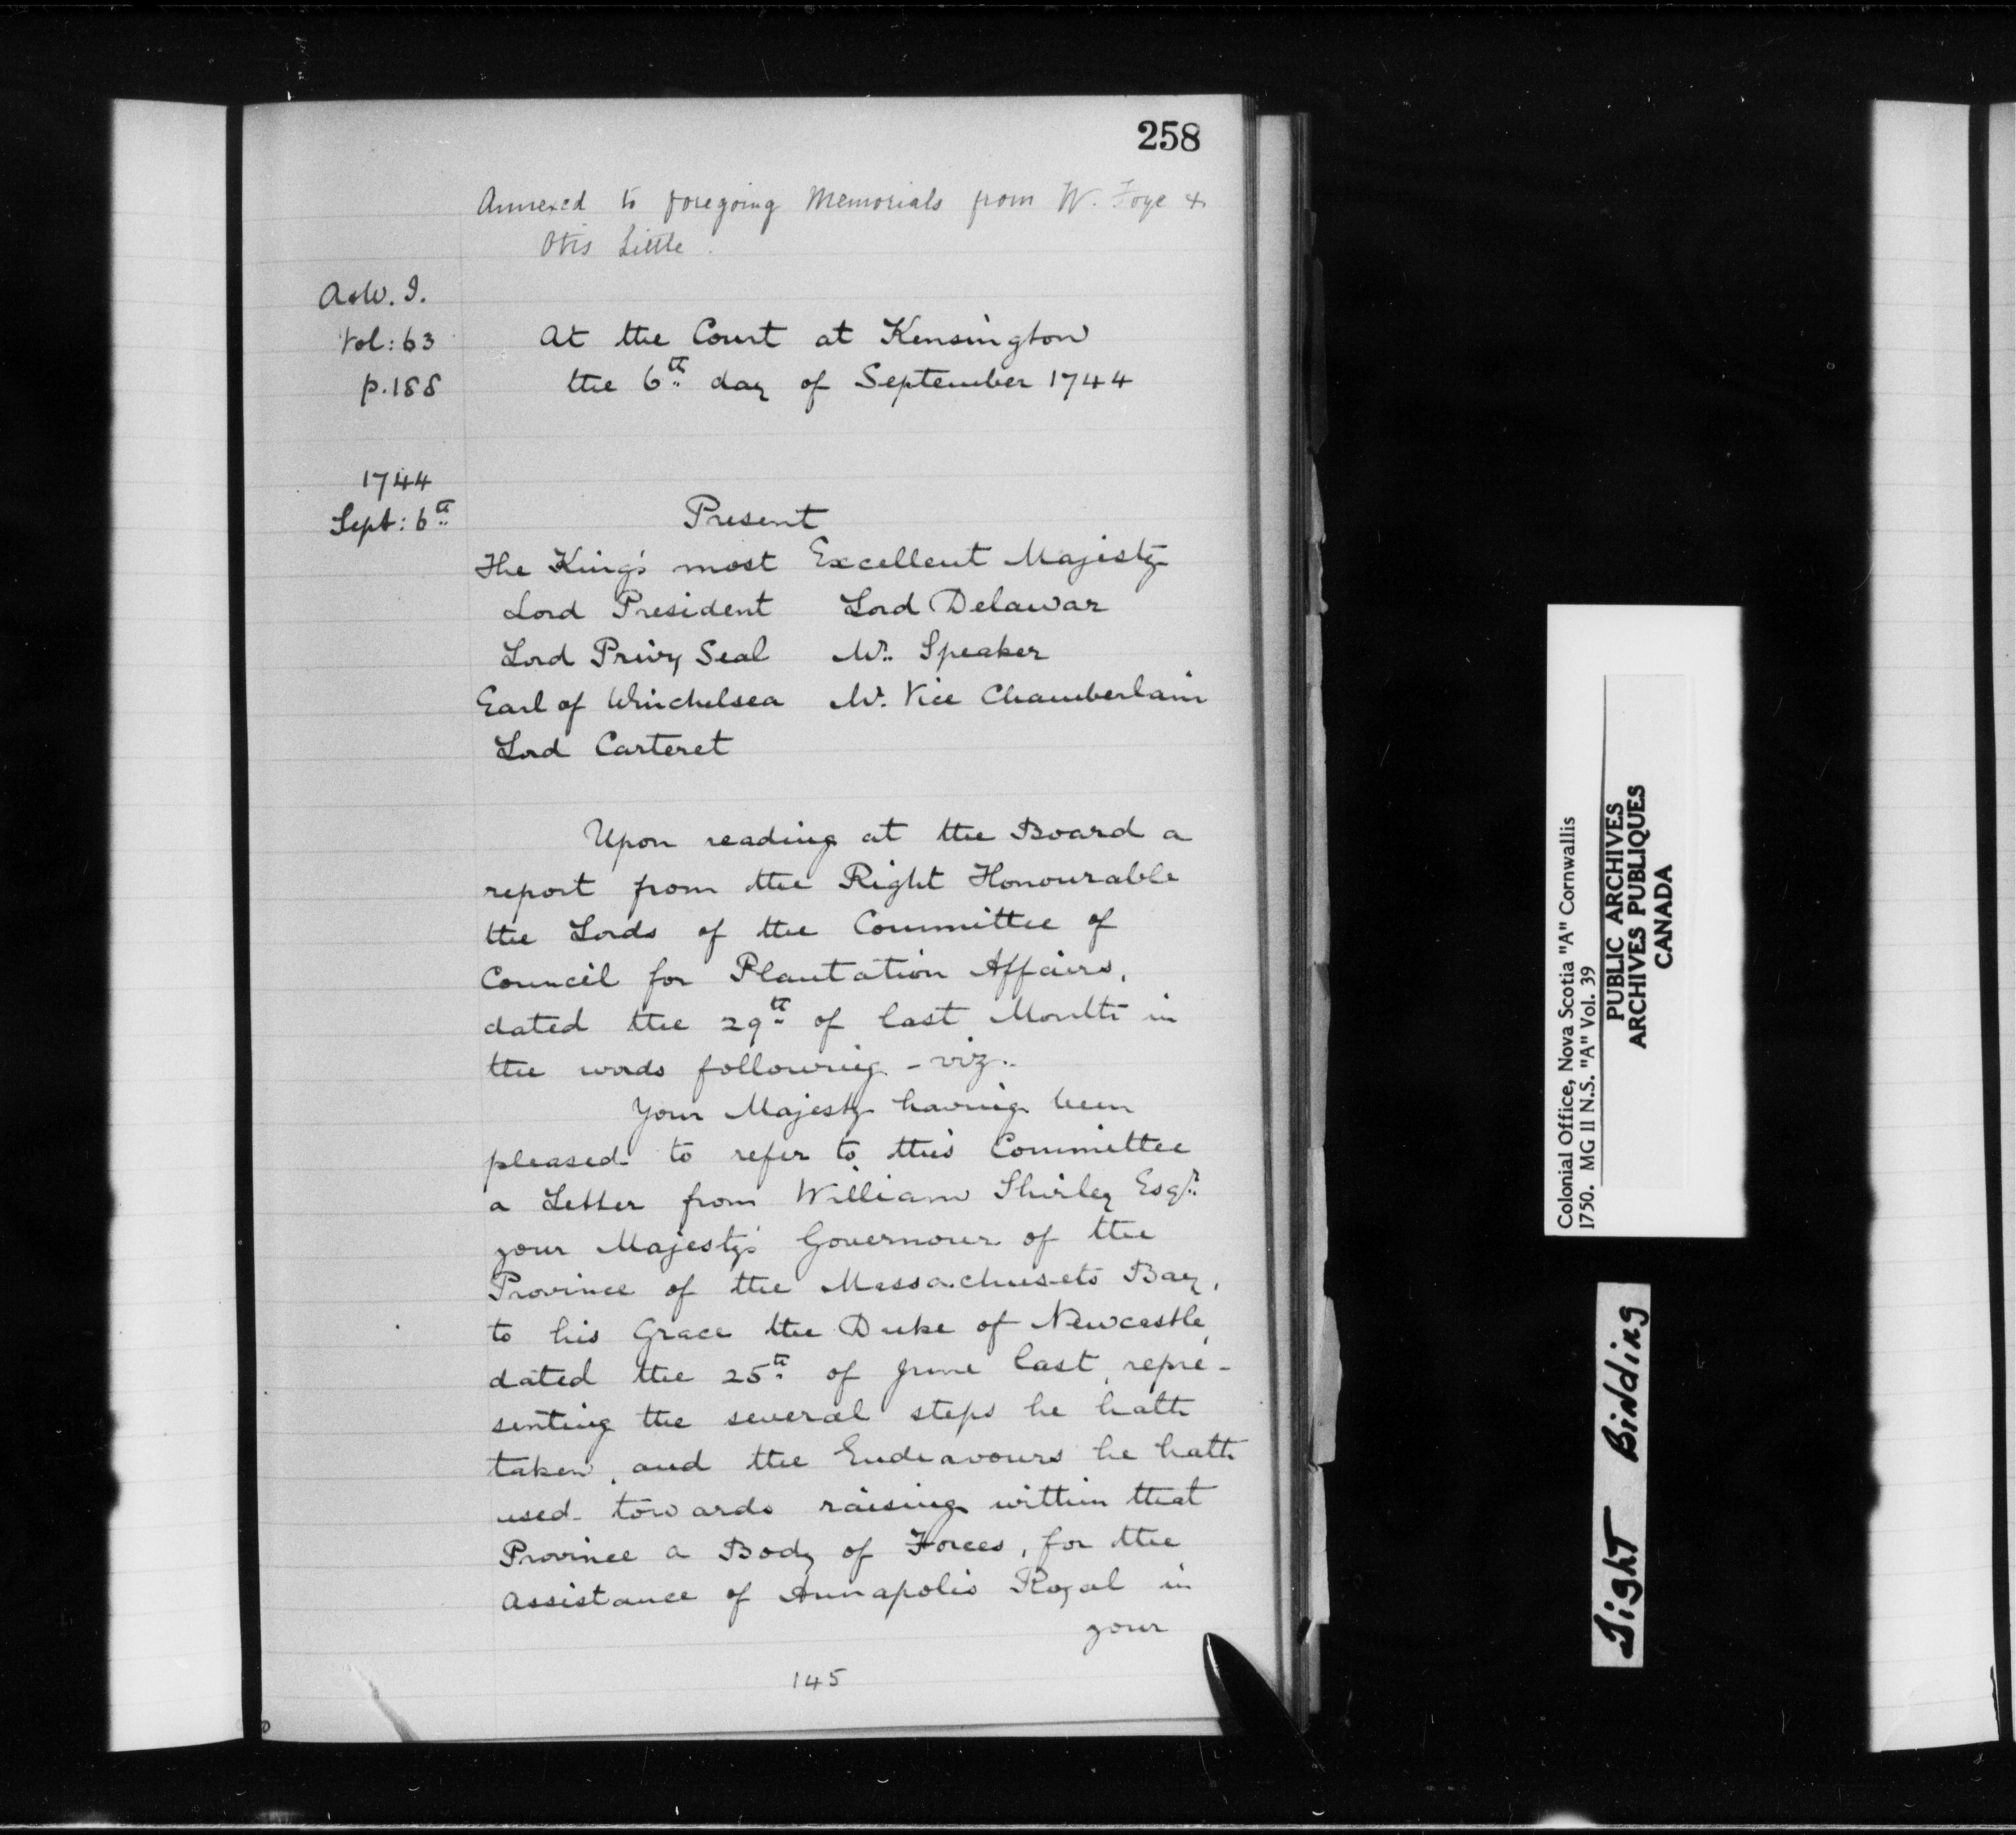 258
Annexed to foregoing Memorials from W. Foye &
Otis Little.
A&W. I.
Vol: 63
p. 188
At the Court at Kensington
the 6th day of September 1744
1744
Sept: 6th
Present
The King's most Excellent Majesty
Lord President Lord Delawar
Lord Privy Seal Mr. Speaker
Earl of Winchelsea Mr. Vice Chamberlain
Lord Carteret
Upon reading at the Board a
report from the Right Honourable
the Lords of the Committee of
Council for Plantation Affairs,
dated the 29th of last Month in
the words following - viz..
Your Majesty having been
pleased to refer to this Committee
a Letter from William Shirley Esqr.
your Majesty's Governour of the
Province of the Massachusets Bay,
to his Grace the Duke of Newcastle,
dated the 25th of June last, repre-
senting the several steps he hath
taken, and the Endeavours he hath
used towards raising within that
Province a Body of Forces, for the
Assistance of Annapolis Royal in
your
145
Colonial Office, Nova Scotia "A" Cornwallis
1750. MG 11 N.S. "A" Vol. 39
PUBLIC ARCHIVES
ARCHIVES PUBLIQUES
CANADA
Tight Binding